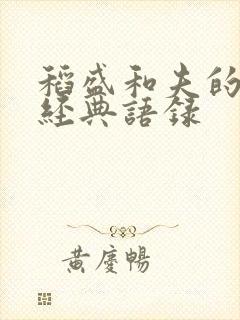 稻盛和夫的
經典語錄
黃慶暢